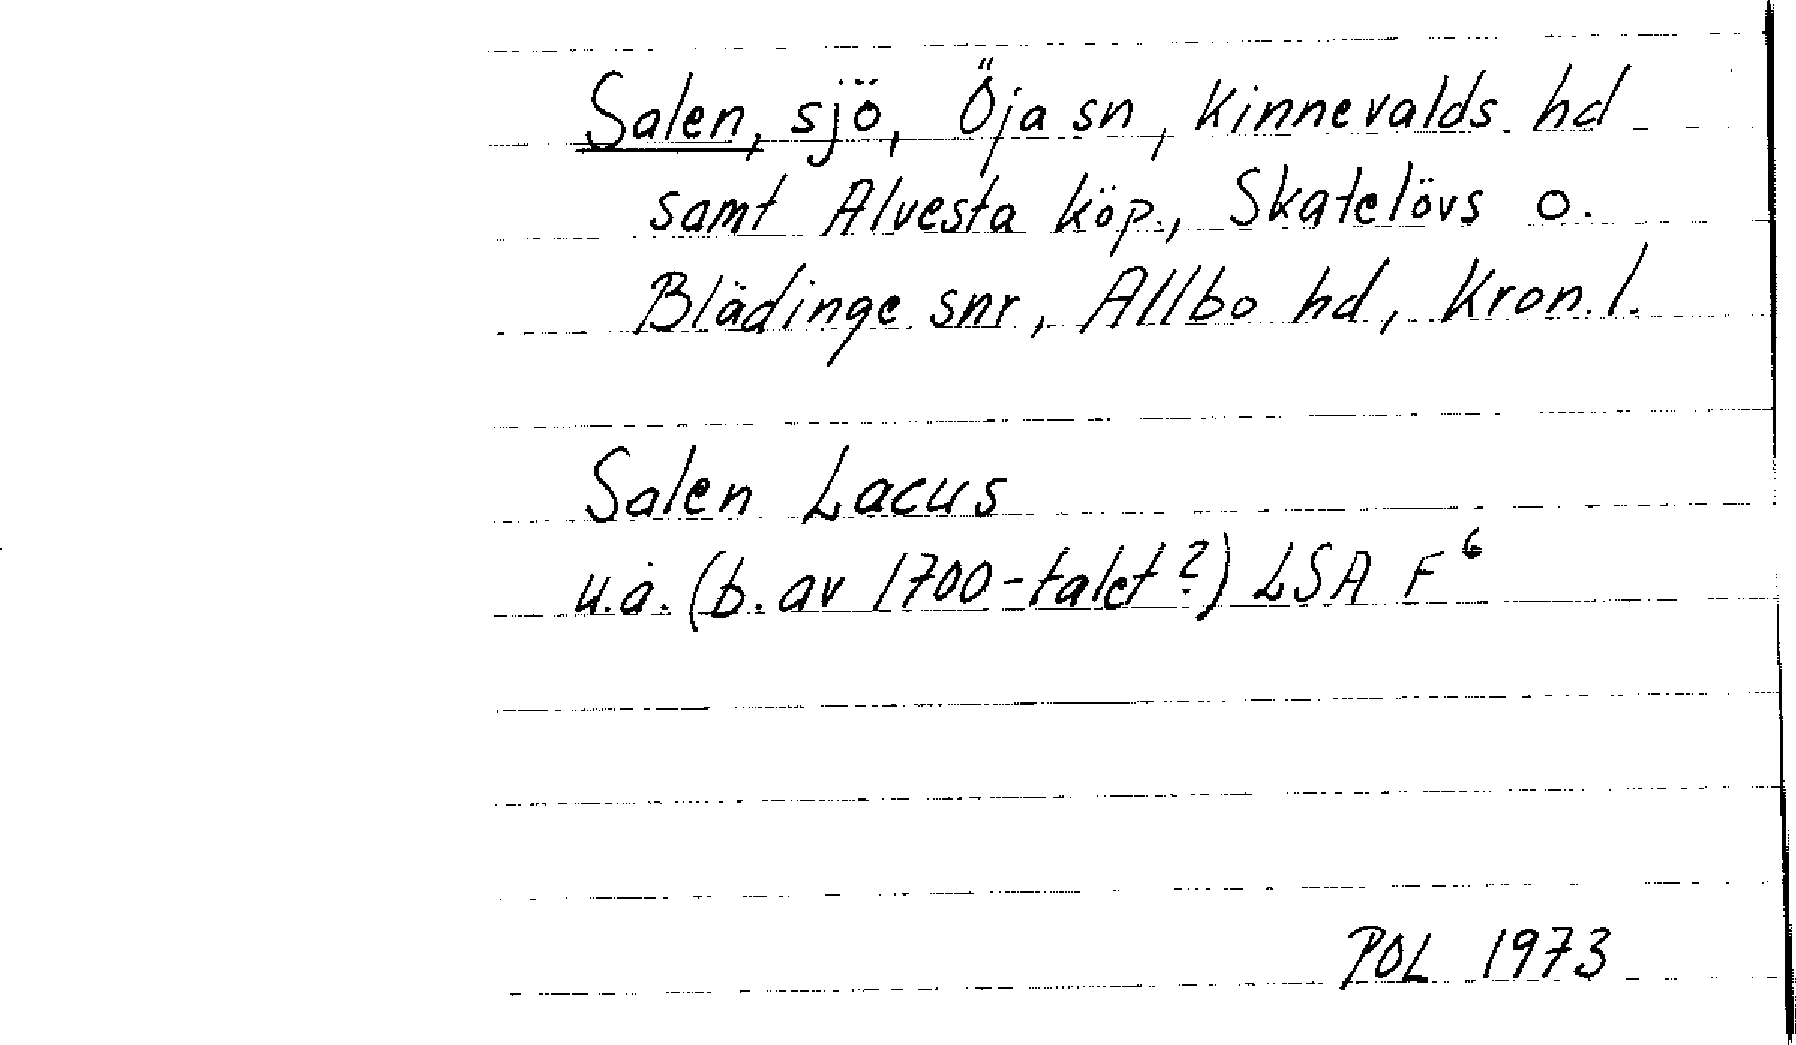 Salen, sjö, Öja sn, Kinnevalds hd
samt Alvesta köp., Skatelövs o.
Blädinge snr, Allbo hd, Kron. l.
Salen Lacus
u.å. (b. av 1700-talet?) LSA F⁶
POL 1973